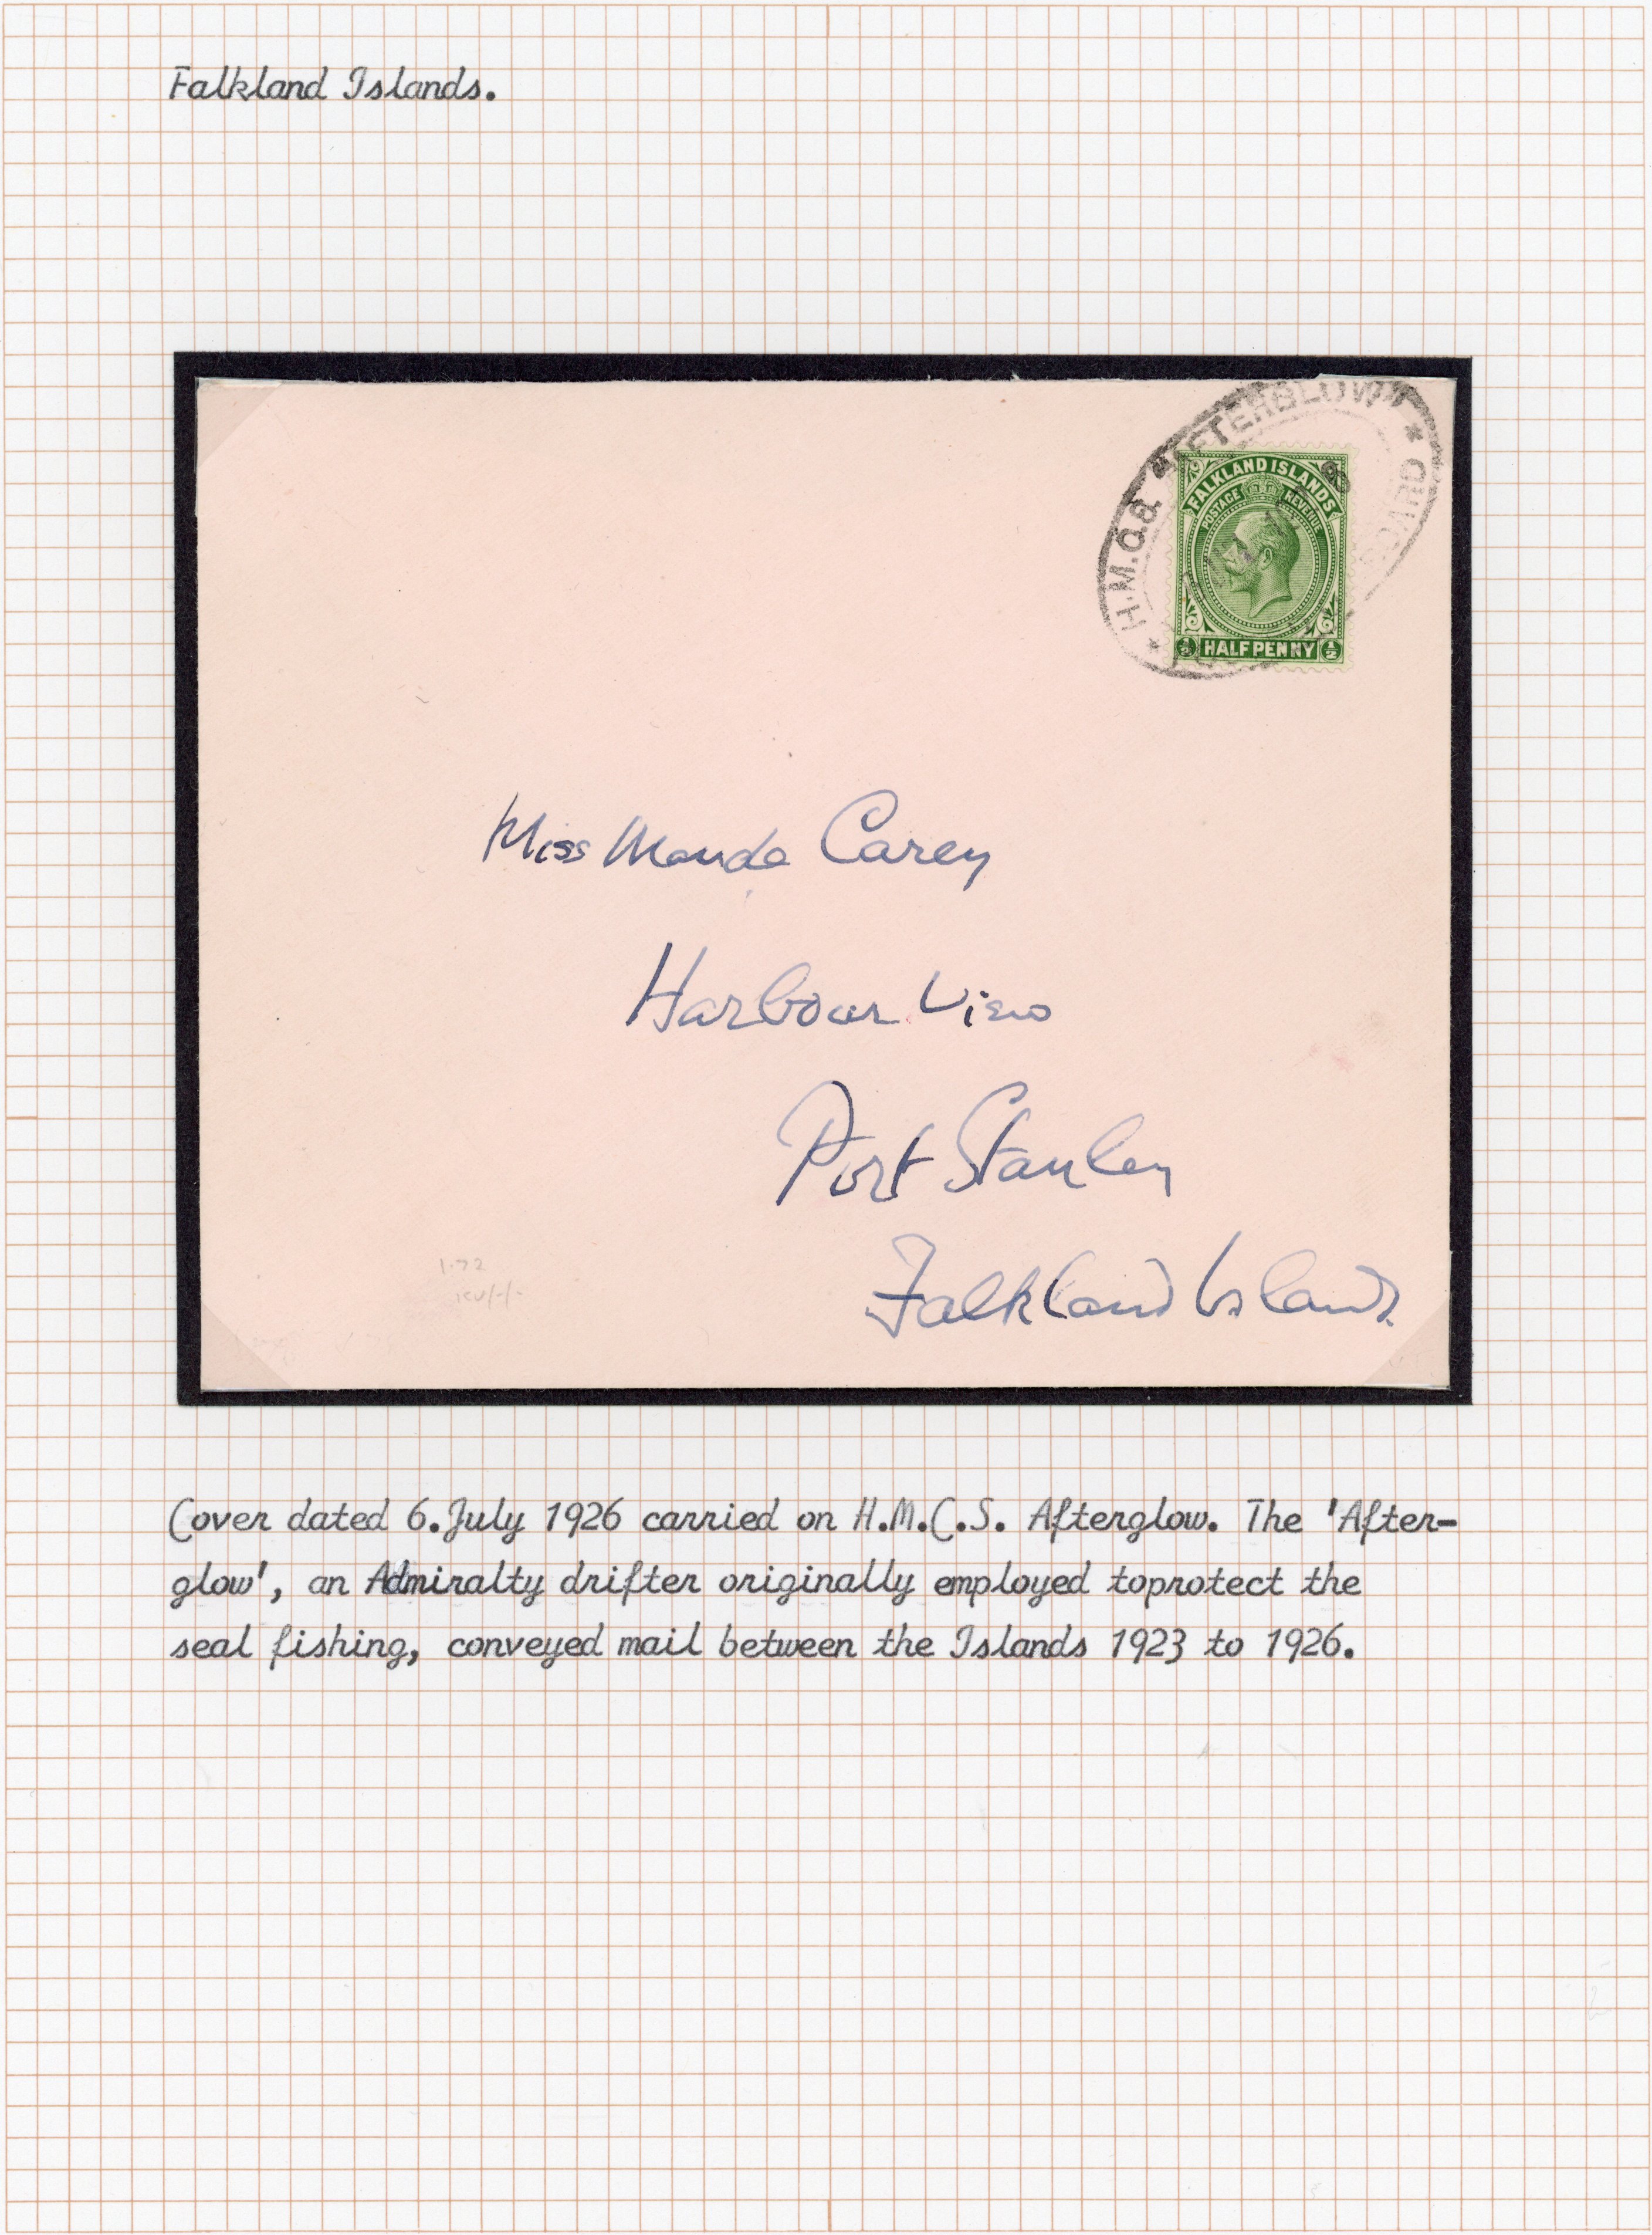 Falkland Islands.
H.M.C.S. "AFTERGLOW"
FALKLAND ISLANDS
POSTAGE REVENUE
½ HALFPENNY ½
Miss Maude Carey
Harbour View
Port Stanley
Falkland Islands.
1.72
Cover dated 6.July 1926 carried on H.M.C.S. Afterglow. The 'After-
glow', an Admiralty drifter originally employed toprotect the
seal fishing, conveyed mail between the Islands 1923 to 1926.